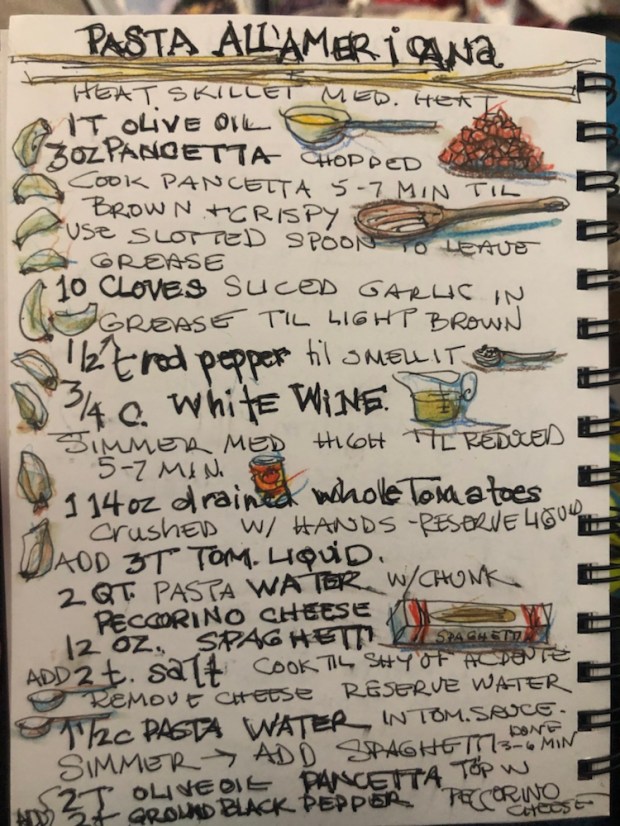 PASTA ALL'AMERICANA
HEAT SKILLET MED. HEAT
1T OLIVE OIL
3OZ PANCETTA CHOPPED
COOK PANCETTA 5-7 MIN TIL
BROWN + CRISPY
USE SLOTTED SPOON TO LEAVE
GREASE
10 CLOVES SLICED GARLIC IN
GREASE TIL LIGHT BROWN
1/2 t red pepper til SMELL IT
3/4 C. WHITE WINE.
SIMMER MED HIGH TIL REDUCED
5-7 MIN.
1 14oz drained whole Tomatoes
CRUSHED W/ HANDS - RESERVE LIQUID
ADD 3T TOM. LIQUID.
2 QT. PASTA WATER W/CHUNK
PECCORINO CHEESE
12 OZ. SPAGHETTI
SPAGHETTI
ADD 2 t. salt COOK TIL SHY OF ALDENTE
REMOVE CHEESE RESERVE WATER
1 1/2 C PASTA WATER IN TOM. SAUCE.
SIMMER → ADD SPAGHETTI DONE 3-6 MIN
2T OLIVE OIL PANCETTA TOP W
ADD 2t GROUND BLACK PEPPER PECCORINO CHEESE